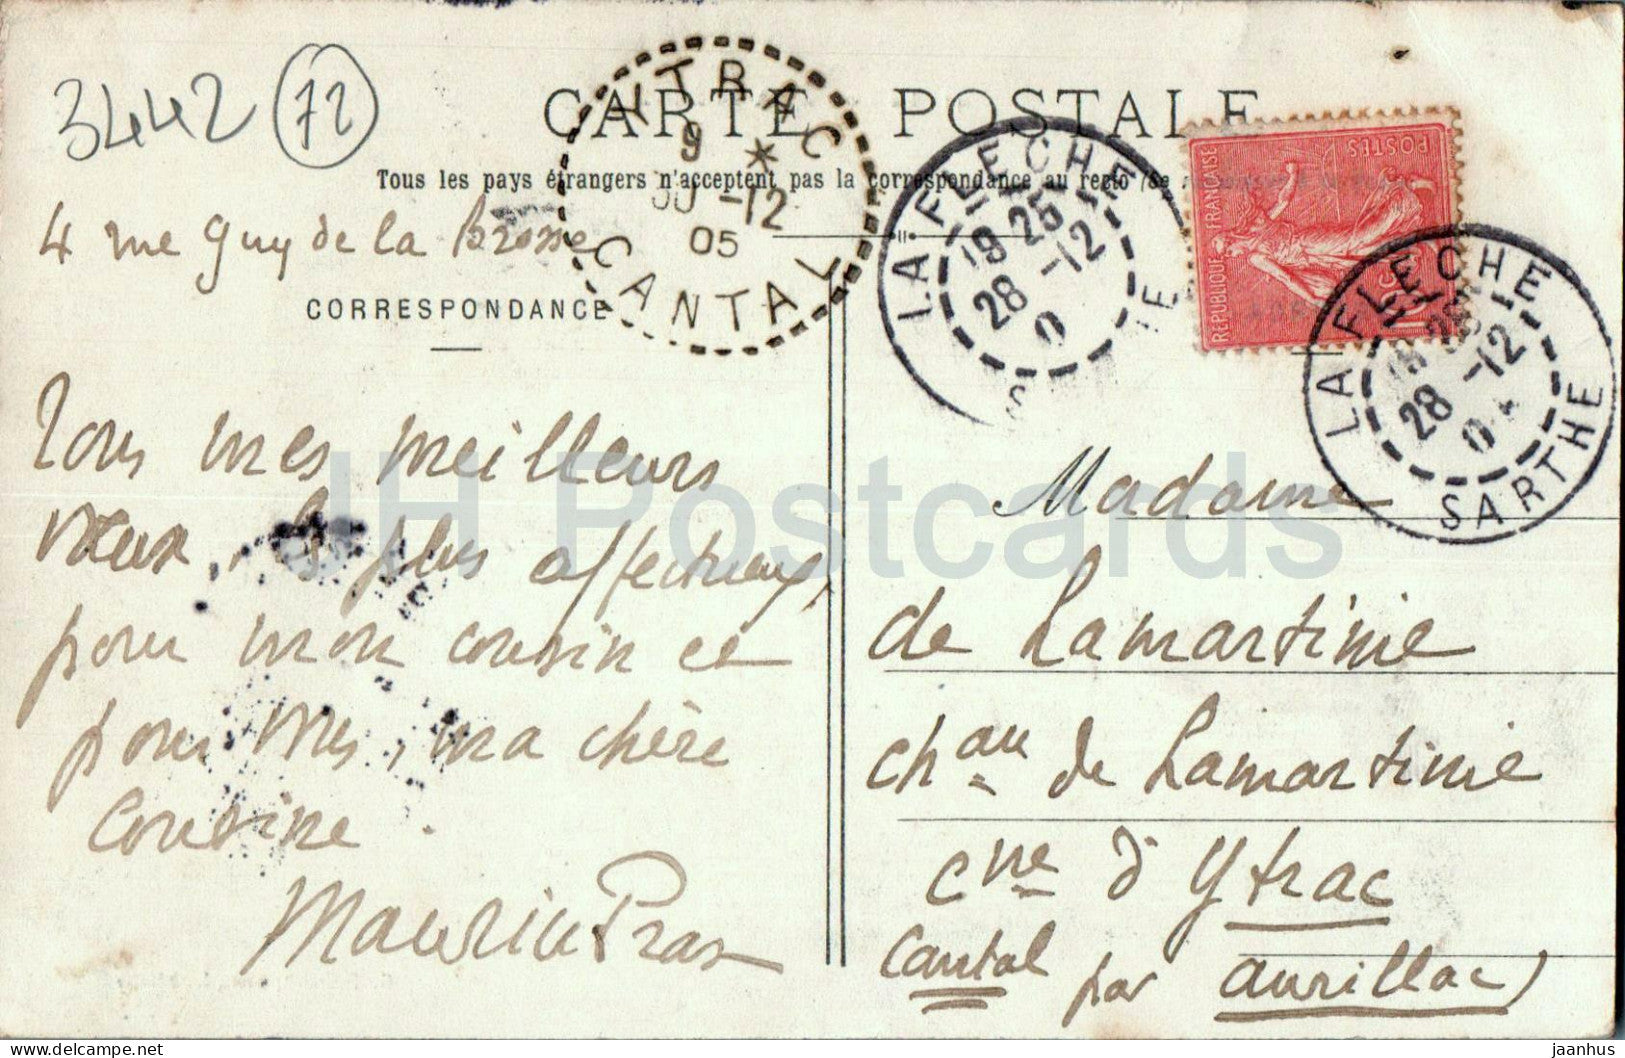 3442 72
CARTE POSTALE
Tous les pays étrangers n'acceptent pas la correspondance au recto (Se
4 rue guy de la Brosse
CORRESPONDANCE
YTRAC
9 *
30 -12
05
CANTAL
LA FLECHE
19 25
28 -12
0
S E
POSTES
REPUBLIQUE FRANÇAISE
10c
LA FLECHE
28 -12
SARTHE
Tous mes meilleurs
vœux, les plus affectueux,
pour mon cousin et
pour vous, ma chère
Cousine.
Maurice Pras
Madame
de Lamartinie
chau de Lamartinie
cne d'Ytrac
Cantal par Aurillac)
JH Postcards
delcampe.net
jaanhus